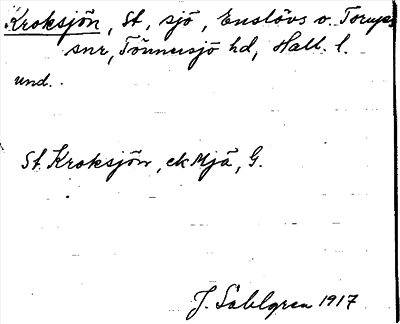 Kroksjön, St, sjö, Enslövs o. Torups
snr, Tönnersjö hd, Hall. l.
und.
St. Kroksjön, ek Mjä, G.
J. Sahlgren 1917